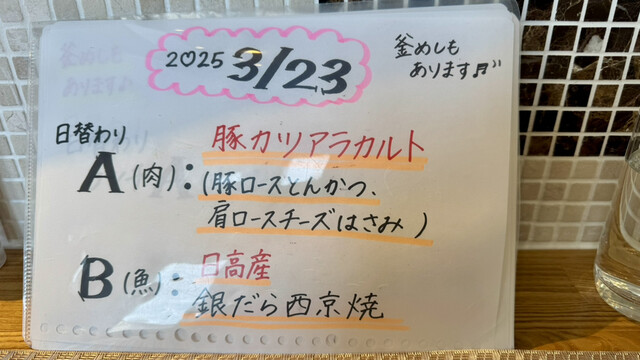 2025 3/23
釜めしも
あります♬"
日替わり
豚カツアラカルト
A(肉):(豚ロースとんかつ、
肩ロースチーズはさみ)
日高産
B(魚):
銀だら西京焼